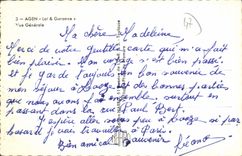 3 - AGEN « Lot & Garonne »
Vue Générale
Ma chère Madeleine
Merci de votre gentille carte qui m'a fait
bien plaisir. Mon voyage s'est bien passé
et je garde toujours un bon souvenir de
mon séjour à et des bonnes parties
que nous avons ensemble surtout en
passant dans la rue Paul Bert.
J'espère aller vous à si par
hasard je vais travailler à Paris.
Bon amical souvenir